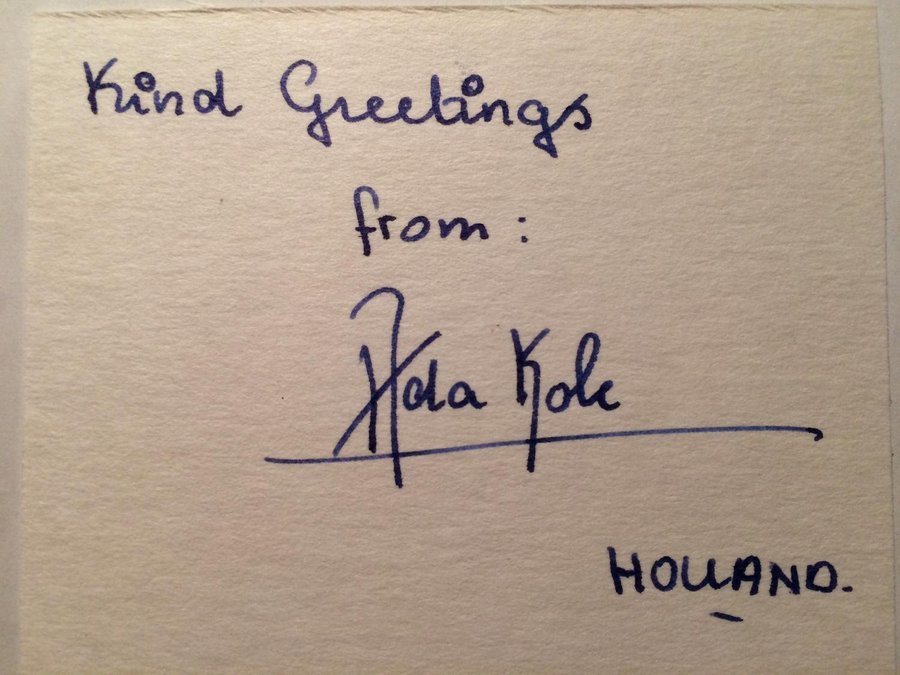 Kind Greetings
from:
Ada Kok
HOLLAND.